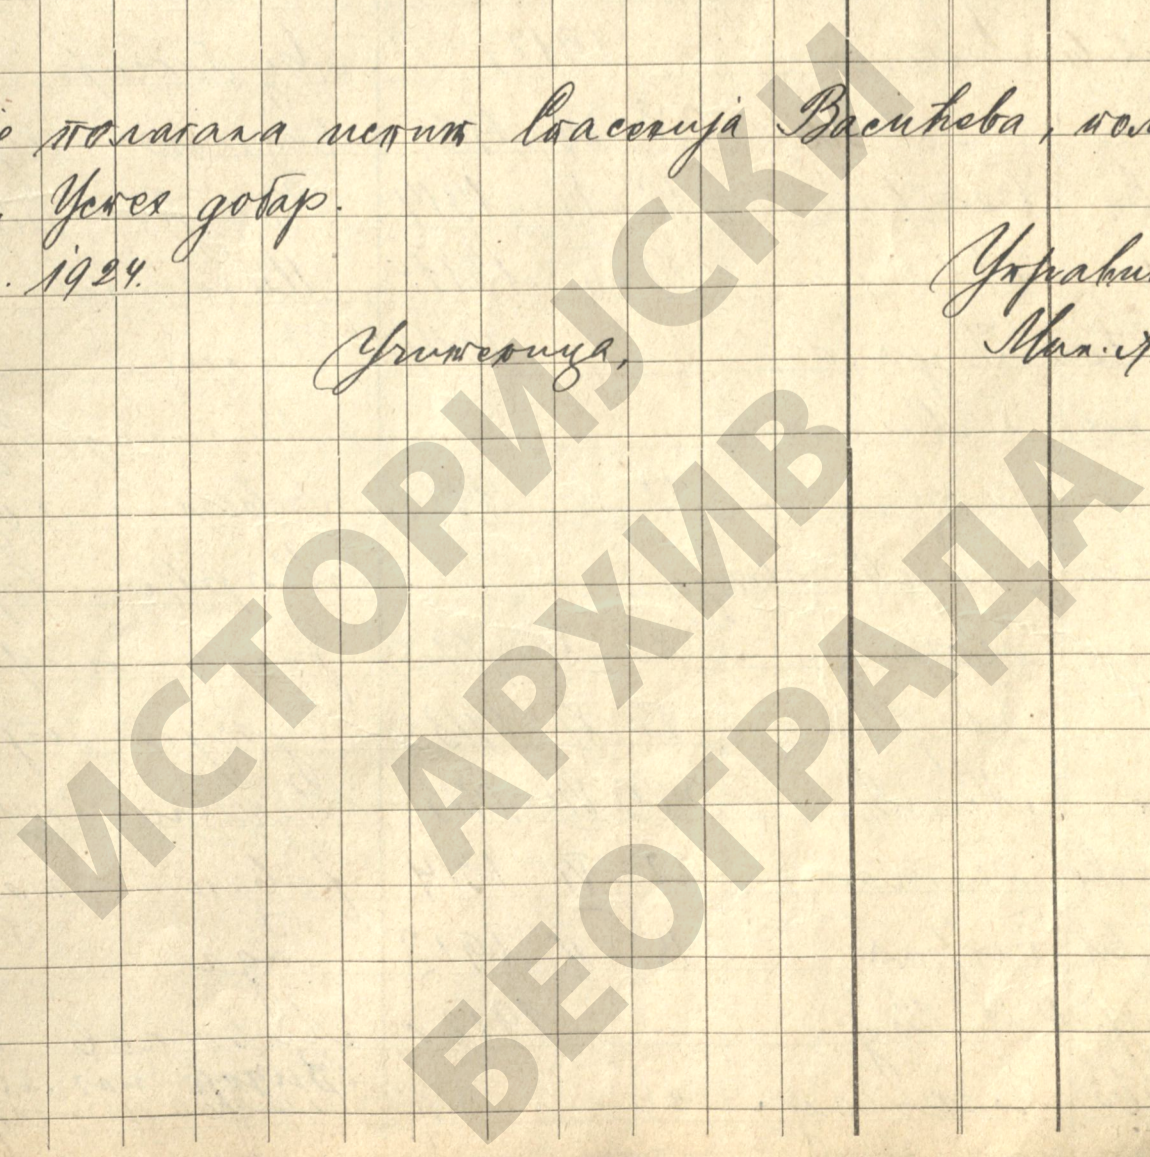 је полагала испит Спасенија Васићева, пол
Успех добар.
. 1924.
Управи
Учитељица,
Мил. А
ИСТОРИЈСКИ
АРХИВ
БЕОГРАДА